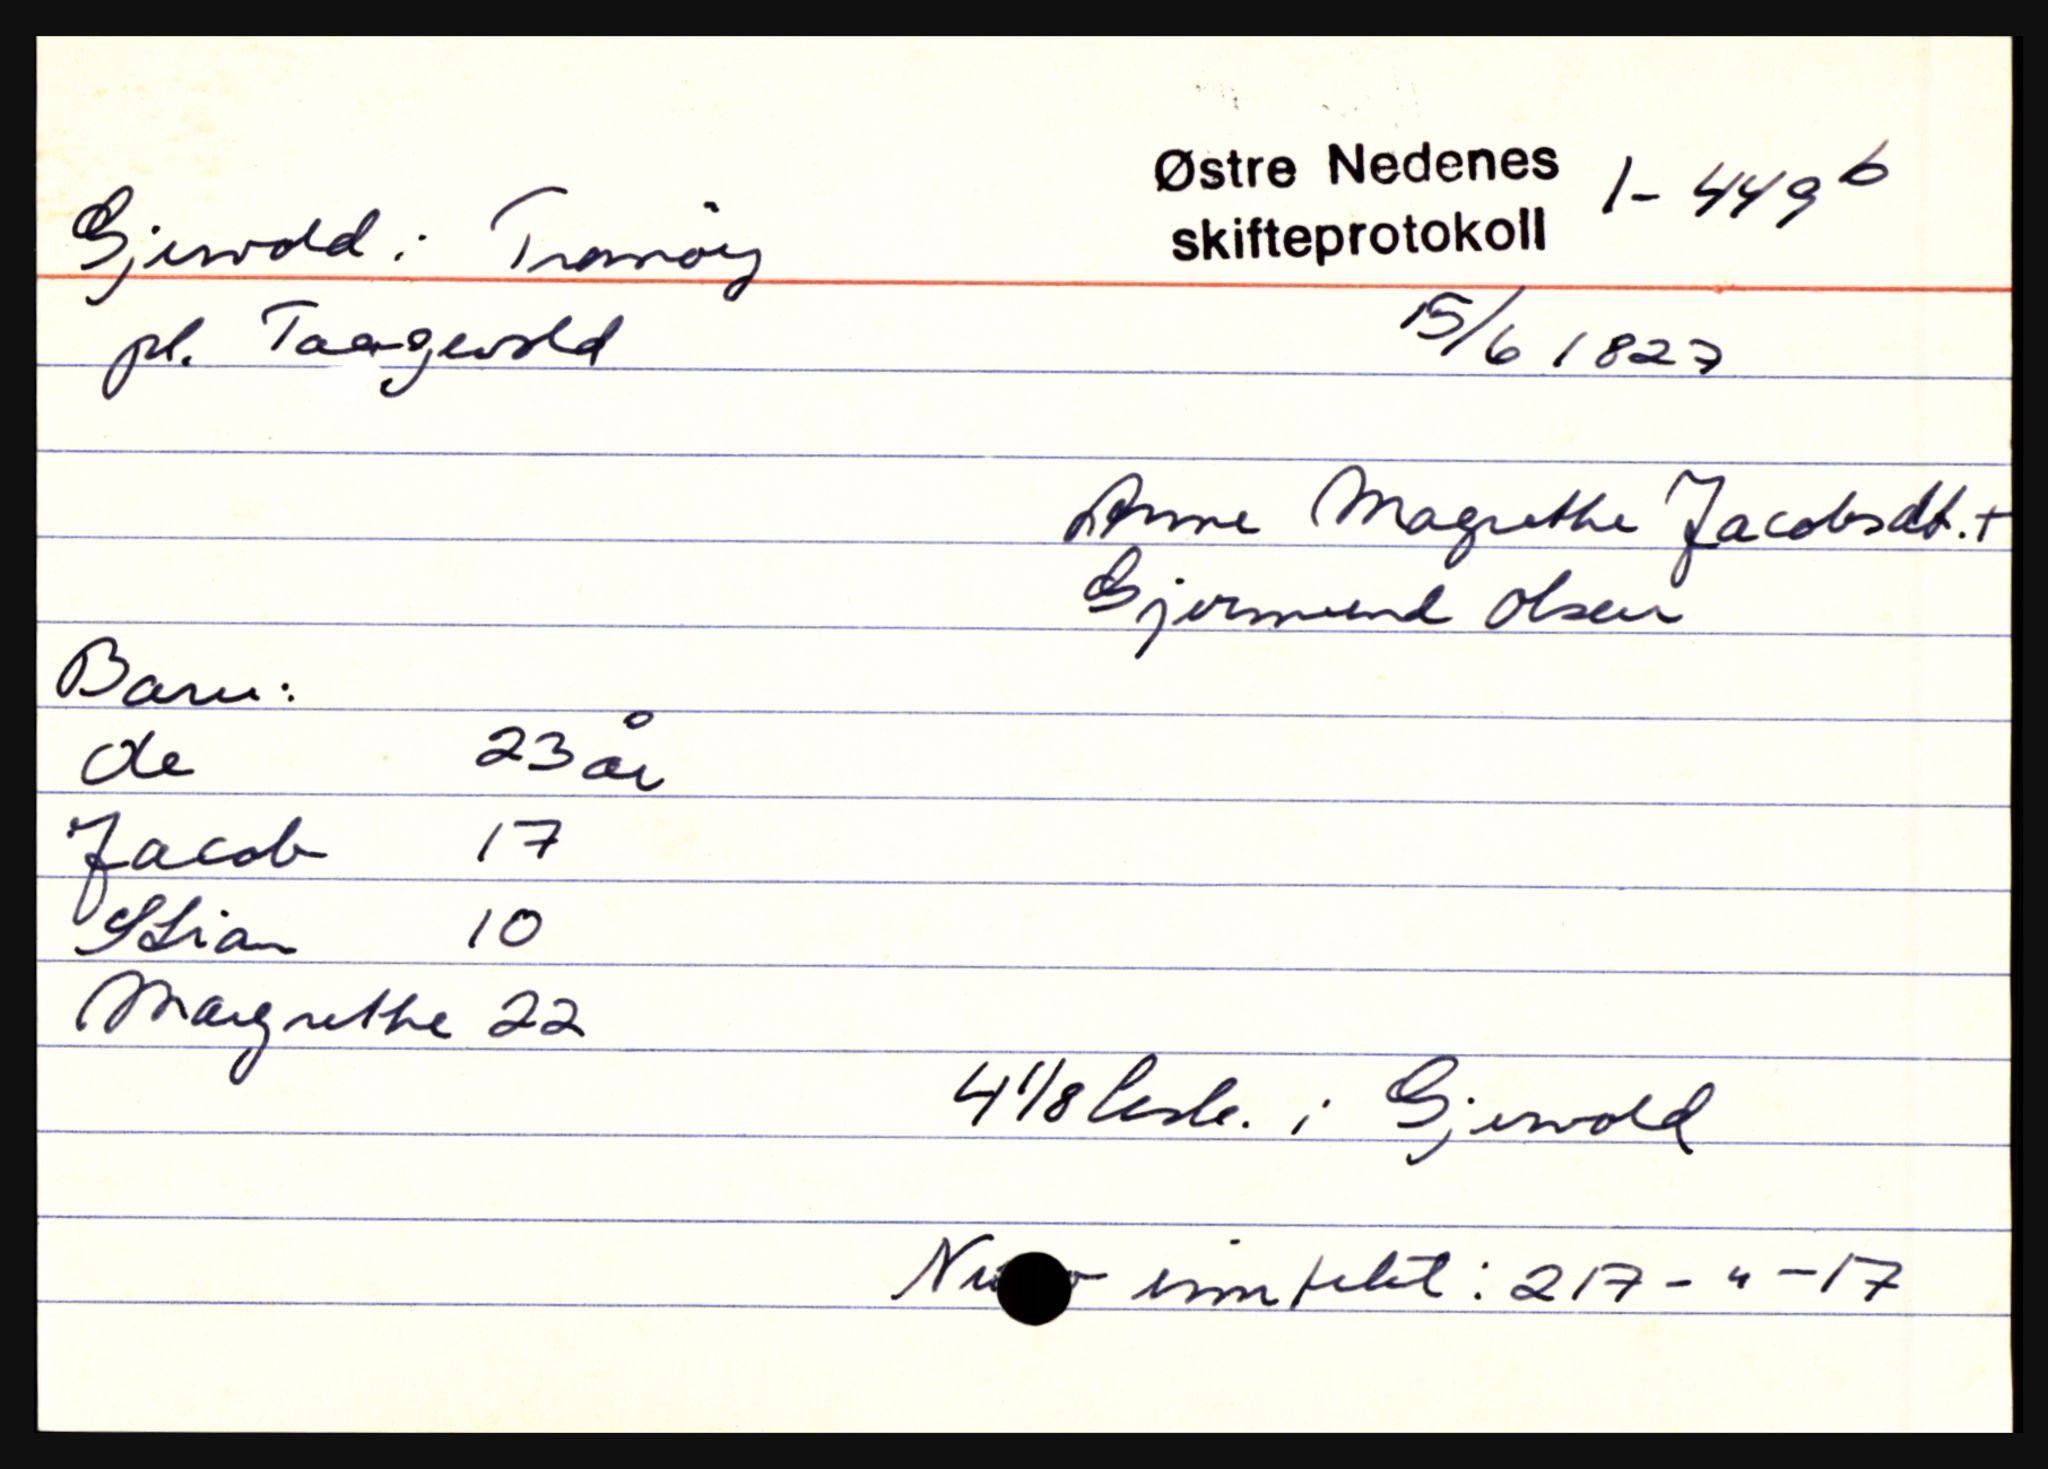 Østre Nedenes 1-449 b
skifteprotokoll
Gjervold i Tromöy
pl. Taangevold
15/6 1827
Anne Magrethe Jacobsdt. +
Gjermund Olsen
Barn:
Ole 23 år
Jacob 17
Stian 10
Margrethe 22
4 1/8 i Gjervold
intekt: 217 - " - 17